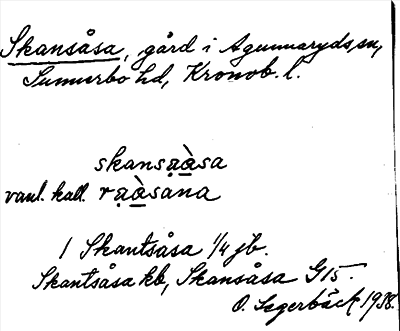 Skansåsa, gård i Agunnaryds sn,
Sunnerbo hd, Kronob. l.
skansa̤à̲sa
vanl. kall. ra̤à̲sana
1 Skantsåsa 1/4 jb.
Skantsåsa kb, Skansåsa G15.
O. Segerbäck 1938.